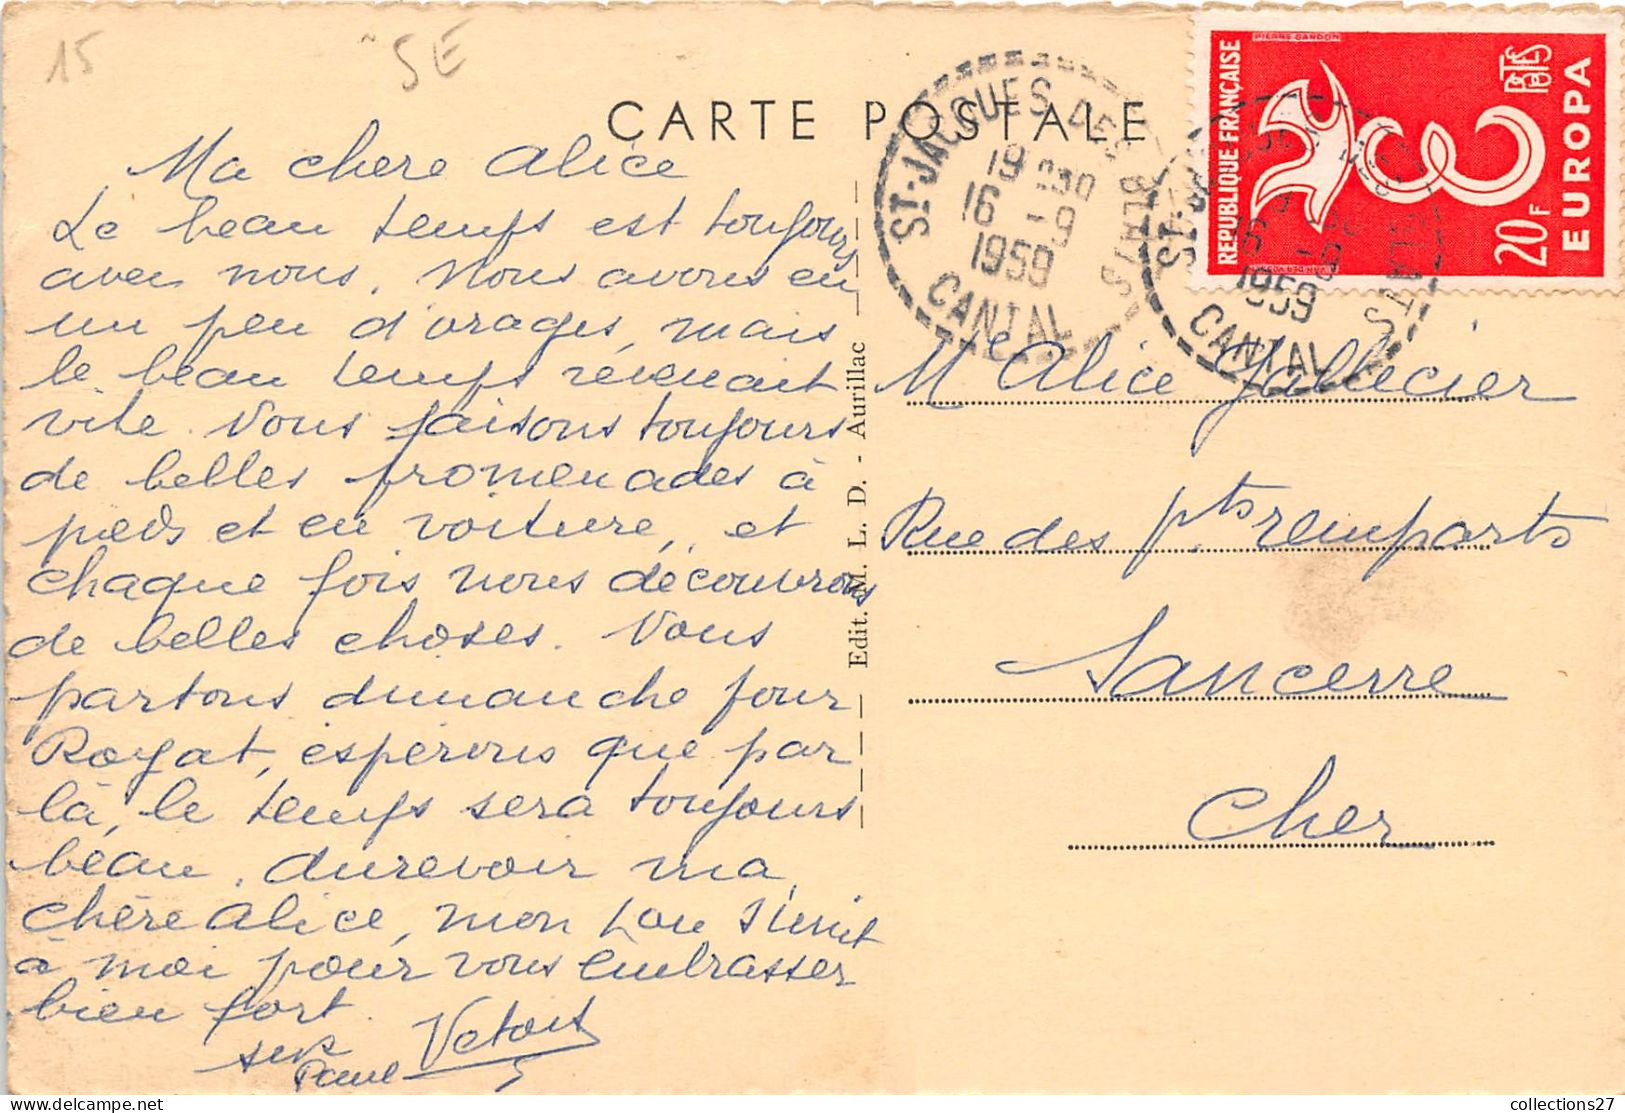 15
SE
CARTE POSTALE
Ma chere Alice
Le beau temps est toujours
avec nous. Nous avons eu
un peu d'orages, mais
le beau temps revenait
vite. Nous faisons toujours
de belles promenades à
pieds et en voiture, et
chaque fois nous découvrons
de belles choses. Nous
partons dimanche pour
Royat, espérons que par
là, le temps sera toujours
beau. Aurevoir ma
chère Alice, mon Lou s'unit
à moi pour vous embrasser
bien fort.
Paul
Edit. M. L. D. - Aurillac
ST-JACQUES DES BLATS
19 30
16 -9
1959
CANTAL
ST-JACQUES DES BLATS
16 -9
1959
CANTAL
REPUBLIQUE FRANÇAISE
PIERRE GANDON
20F
EUROPA
Me Alice
Rue des pts remparts
Sancerre
Cher
collections27